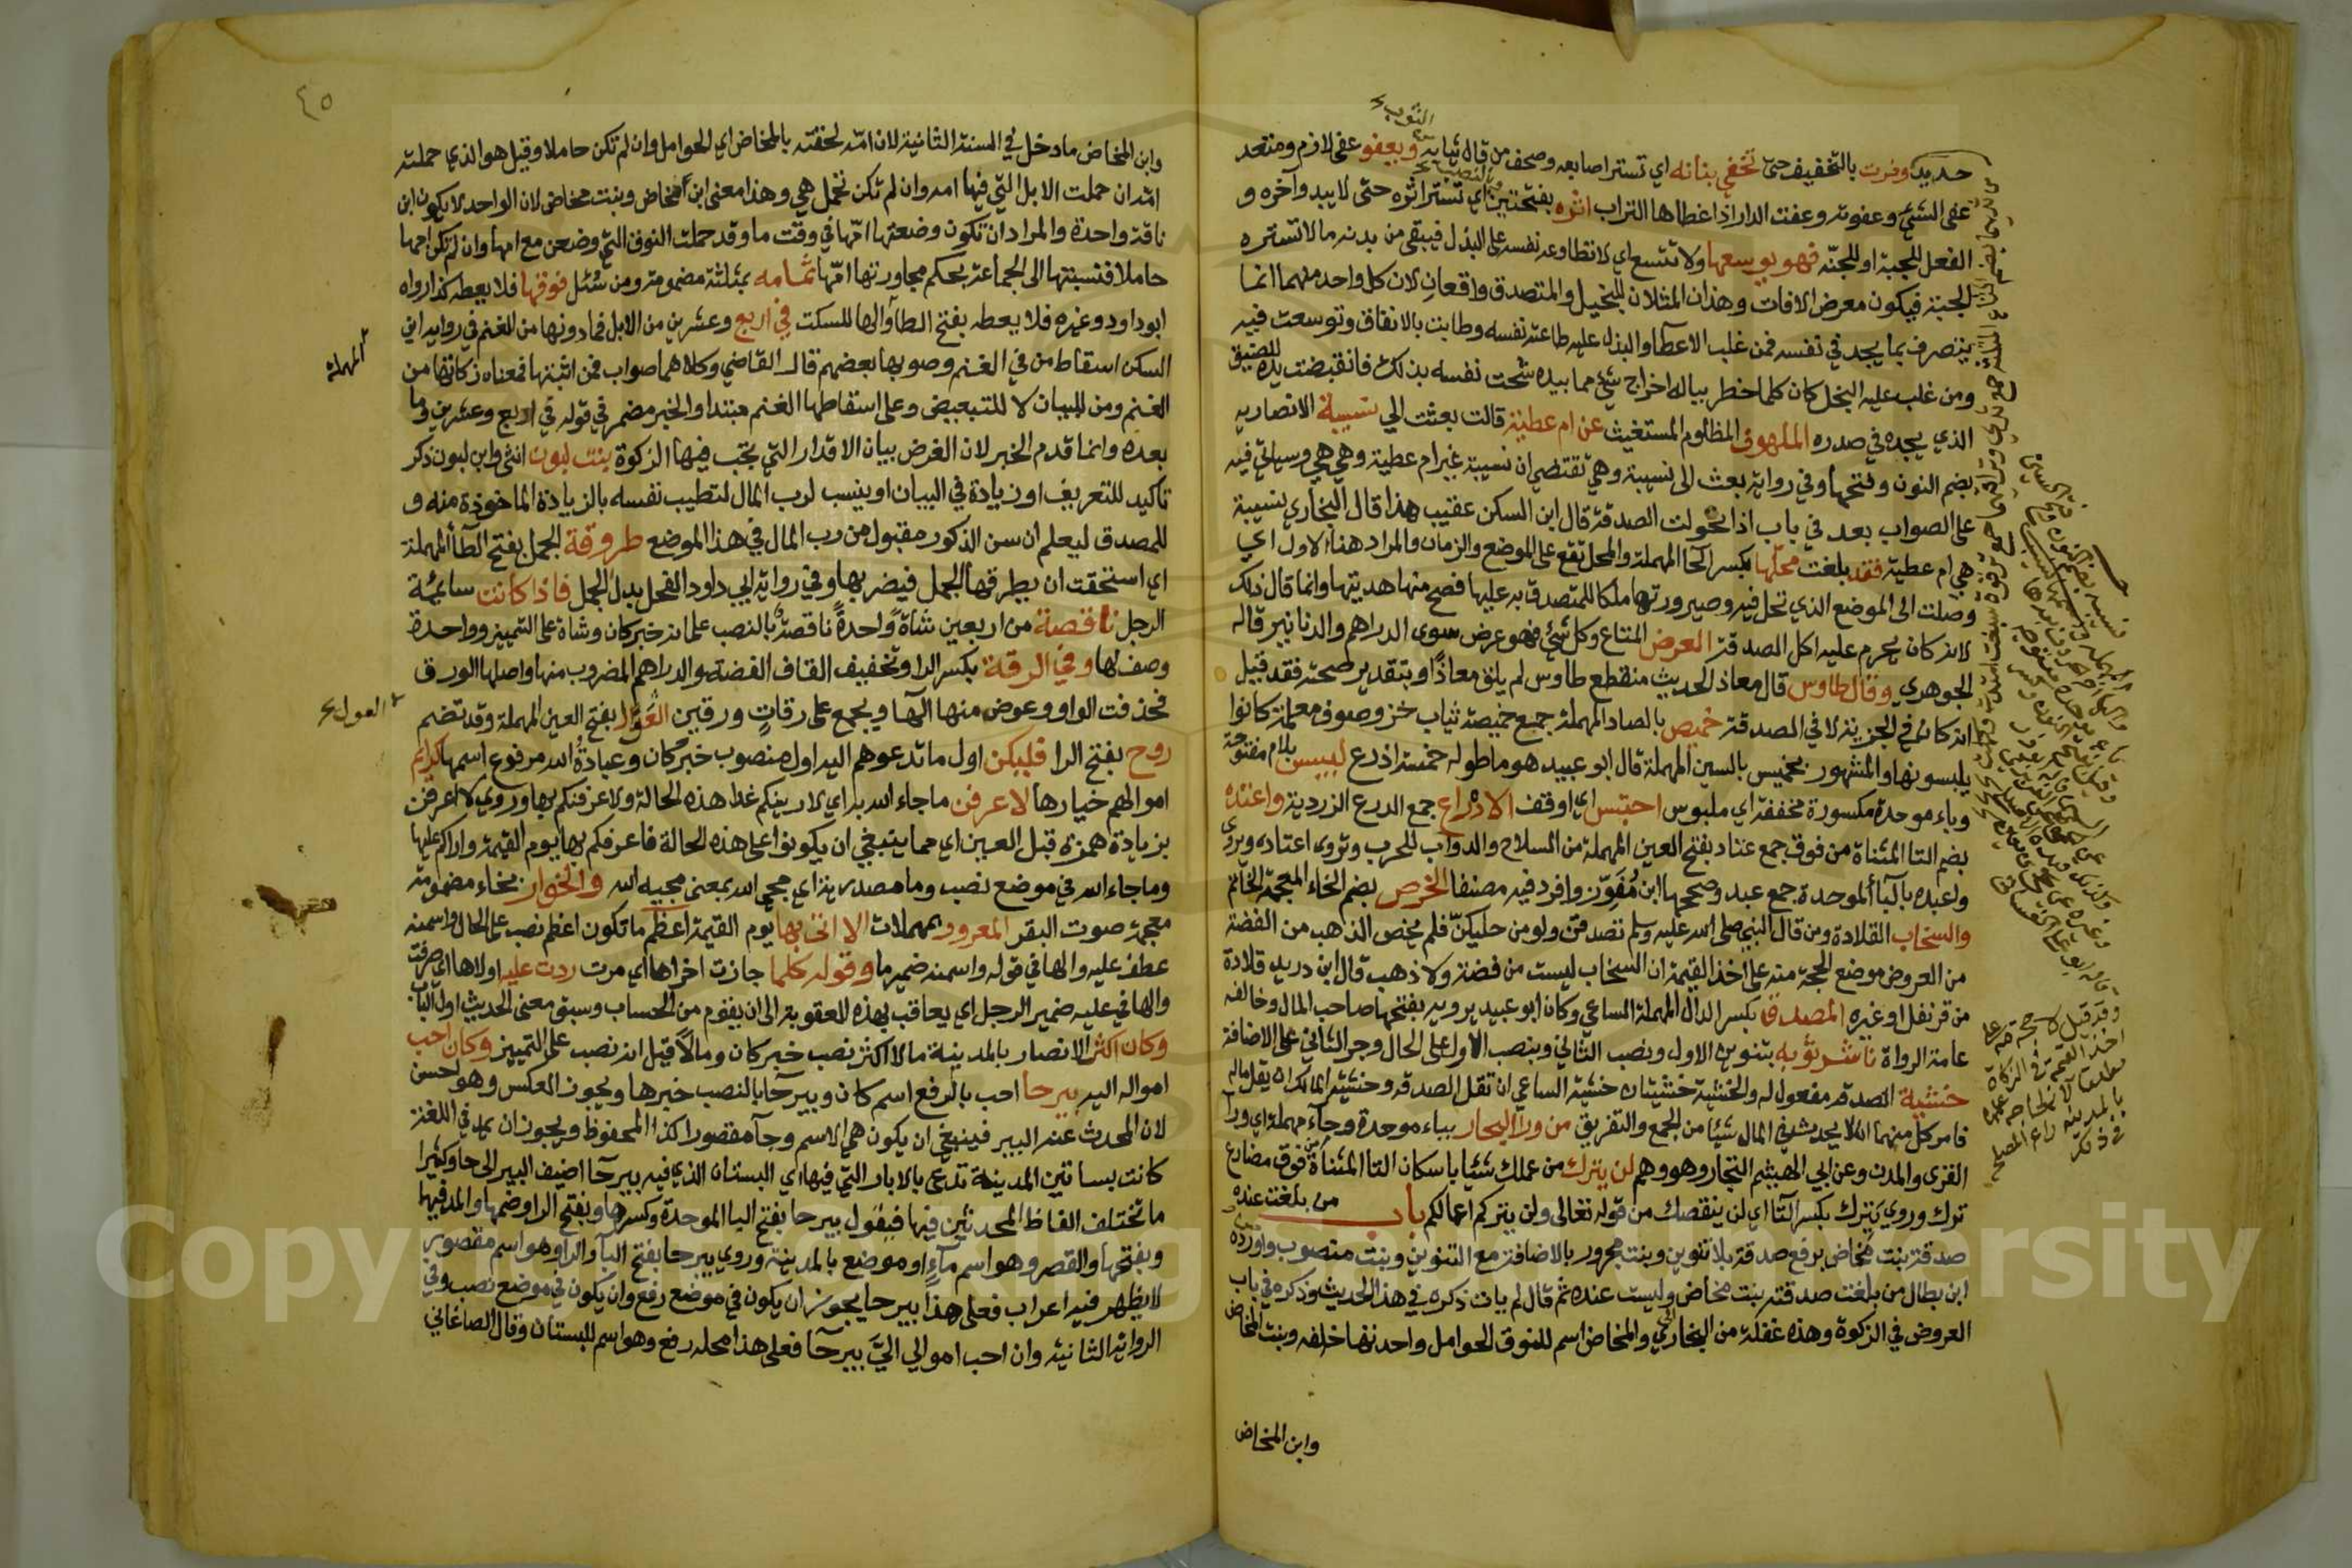 حديد وفرت بالتخفيف حتى تخفي بنانه اي تستر اصابعه وصحف من قال ثيابه ويعفو عفى لازم ومتعد
عفى الشئ وعفوته وعفت الدار اذا غطاها التراب اثره بفتحتين اي تستر اثره حتى لا يبدو آخره و
الفعل للجبة او للجنّه فهو يوسعها ولا تتسع اي لا تطاوعه نفسه على البذل فيبقى من بدنه ما لا تستره
الجبة فيكون معرض الافات وهذان المثلان للبخيل والمتصدق واقعان لان كل واحد منهما انما
يتصرف بما يجد في نفسه فمن غلب الاعطآ والبذل عليه طاعته نفسه وطابت بالانفاق وتوسعت فيه
ومن غلب عليه البخل كان كلما خطر بباله اخراج شئ مما بيده شحت نفسه بذلك فانقبضت يده للضيق
الذي يجده في صدره الملهوف المظلوم المستغيث عن ام عطية قالت بعثت الي نسيبة الانصاريه
بضم النون وفتحها وفي رواية بعث الى نسيبة وهي تقتضي ان نسيبة غير ام عطية وهي هي وسياتي فيه
على الصواب بعد في باب اذا تحولت الصدقة قال ابن السكن عقيب هذا قال البخاري نسيبة
هي ام عطية فقد بلغت محلّها بكسر الحآ المهملة والمحل تقع على الموضع والزمان والمراد هنا الاول اي
وصلت الى الموضع الذي تحل فيه وصيرورتها ملكا للمتصدق به عليها فصح منها هديتها وانما قال ذلك
لانه كان يحرم عليه اكل الصدقة العرض المتاع وكل شئ فهو عرض سوى الدراهم والدنانير قاله
الجوهري وقال طاوس قال معاذ الحديث منقطع طاوس لم يلق معاذًا وبتقدير صحته فقد قيل
انه كان في الجزية لا في الصدقة خميص بالصاد المهملة جمع خميصة ثياب خز وصوف معلمة كانوا
يلبسونها والمشهور بخميس بالسين المهملة قال ابو عبيد هو ما طوله خمسة اذرع لبيس بلام مفتوحة
وباء موحدة مكسورة مخففة اي ملبوس احتبس اي اوقف الادراع جمع الدرع الزردية واعتده
بضم التا المثناة من فوق جمع عتاد بفتح العين المهملة من السلاح والدواب للحرب وتروى اعتاده ويروى
واعبده بالبآ الموحدة جمع عبد وصححها ابن مُفَوّز وافرد فيه مصنفا الخرص بضم الخاء المعجمة الخاتم
والسخاب القلادة ومن قال النبي صلى الله عليه وسلم تصدقن ولو من حليكنّ فلم يخص الذهب من الفضة
من العروض موضع الحجة منه على اخذ القيمة ان السخاب ليست من فضة ولا ذهب قال ابن دريد قلادة
من قرنفل او غيره المصدق بكسر الدال المهملة الساعي وكان ابو عبيد يرويه بفتحها صاحب المال وخالفه
عامة الرواة ناشر ثوبه بتنوين الاول ونصب الثاني وبنصب الاول على الحال وجر الثاني على الاضافة
خشية الصدقة مفعول له والخشية خشيتان خشية الساعي ان تقل الصدقة وخشية المالك ان يقل ماله
فامر كل منهما ان لا يحدث في المال شيئا من الجمع والتفريق من ورا البحار بباء موحدة وحآء مهملة اي ورآ
القرى والمدن وعن ابي الهيثم التجار وهو وهم لن يترك من عملك شيئا باسكان التا المثناة من فوق مضارع
ترك وروي يَتِرك بكسر التآ اي لن ينقصك من قوله تعالى ولن يتركم اعمالكم باب من بلغت عنده
صدقة بنت مخاض برفع صدقة بلا تنوين وبنت مجرور بالاضافة مع التنوين وبنت منصوب واورده
ابن بطال من بلغت صدقته بنت مخاض وليست عنده ثم قال لم يات ذكره في هذا الحديث وذكره في باب
العروض في الزكوة وهذه غفلة من البخاري والمخاض اسم للنوق الحوامل واحدتها خلفه وبنت المخاض
وابن المخاض
٤٥
وابن المخاض ما دخل في السنة الثانية لان امّه لحقته بالمخاض اي الحوامل وان لم تكن حاملا وقيل هو الذي حملته
امّه ان حملت الابل التي فيها امه وان لم تكن تحمل هي وهذا معنى ابن مخاض وبنت مخاض لان الواحد لا يكون ابن
ناقة واحدة والمراد ان تكون وضعتها امّها في وقت ما وقد حملت النوق التي وضعن مع امها وان لم تكن امها
حاملا فنسبتها الى الجماعة بحكم مجاورتها امّها ثمامه بمثلثة مضمومة ومن سُئل فوقها فلا يعطه كذا رواه
ابو داود وغيره فلا يعطه بفتح الطآ والها للسكت في اربع وعشرين من الابل فما دونها من الغنم في رواية ابن
السكن اسقاط من في الغنم وصوبها بعضهم قال القاضي وكلاهما صواب فمن اثبتها فمعناه زكاتها من
الغنم ومن للبيان لا للتبعيض وعلى اسقاطها الغنم مبتدا والخبر مضمر في قوله في اربع وعشرين وما
بعده وانما قدم الخبر لان الغرض بيان الاقدار التي تجب فيها الزكوة بنت لبون انثى وابن لبون ذكر
تاكيد للتعريف او زيادة في البيان او ينسب لرب المال لتطيب نفسه بالزيادة الماخوذة منه و
للمصدق ليعلم ان سن الذكور مقبول من رب المال في هذا الموضع طروقة الجمل بفتح الطآ المهملة
اي استحقت ان يطرقها الجمل فيضربها وفي رواية ابي داود الفحل بدل الجمل فاذا كانت سائمة
الرجل ناقصة من اربعين شاةً واحدةً ناقصةً بالنصب على انه خبر كان وشاة على التمييز وواحدة
وصف لها وفي الرقة بكسر الرا وتخفيف القاف الفضة والدراهم المضروب منها واصلها الورق
فحذفت الواو وعوض منها الهآ ويجمع على رقاتٍ ورقين العَوار بفتح العين المهملة وقد تضم
روح بفتح الرا فليكن اول ما تدعوهم اليه اول منصوب خبر كان وعبادةُ الله مرفوع اسمها كرائم
اموالهم خيارها لاعرفن ما جاء الله براي لا رينكم غدا هذه الحالة ولا عرفنكم بها وروي لا اعرفن
بزيادة همزة قبل العين اي مما ينبغي ان يكونوا على هذه الحالة فاعرفكم بها يوم القيمة واراكم عليها
وما جاء الله في موضع نصب وما مصدرية اي مجي الله بمعنى مجيه الله والخوار بخاء مضمومة
معجمة صوت البقر المعرور بمهملات الا اتى بها يوم القيمة اعظم ما تكون اعظم نصب على الحال واسمنه
عطف عليه والها في قوله واسمنه ضمير ما وقوله كلما جازت اخراها اي مرت ردت عليه اولاها اي صرفت
والها في عليه ضمير الرجل اي يعاقب بهذه العقوبة الى ان يقوم من الحساب وسبق معنى الحديث اول الباب
وكان اكثر الانصار بالمدينة مالا اكثر نصب خبر كان ومالًا قيل انه نصب على التمييز وكان احب
امواله اليه بيرحا احب بالرفع اسم كان وبيرحا بالنصب خبرها ويجوز العكس وهو احسن
لان المحدث عنه البير فينبغي ان يكون هي الاسم وحآ مقصورا كذا المحفوظ ويجوز ان يمد في اللغة
كانت بساتين المدينة تدعى بالابار التي فيها اي البستان الذي فيه بيرحآ اضيف البير الى حا وكثيرا
ما تختلف الفاظ المحدثين فيها فيقول بيرحا بفتح البا الموحدة وكسرها وبفتح الرا وضمها والمد فيهما
وبفتحها والقصر وهو اسم مآءٍ او موضع بالمدينة وروي بيرحا بفتح البآ والرا وهو اسم مقصور
لا يظهر فيه اعراب فعلى هذا بيرحا يجوز ان يكون في موضع رفع وان يكون في موضع نصب وفي
الرواية الثانية وان احب اموالي اليَّ بيرحآ فعلى هذا محله رفع وهو اسم للبستان وقال الصاغاني
المهملة
العول